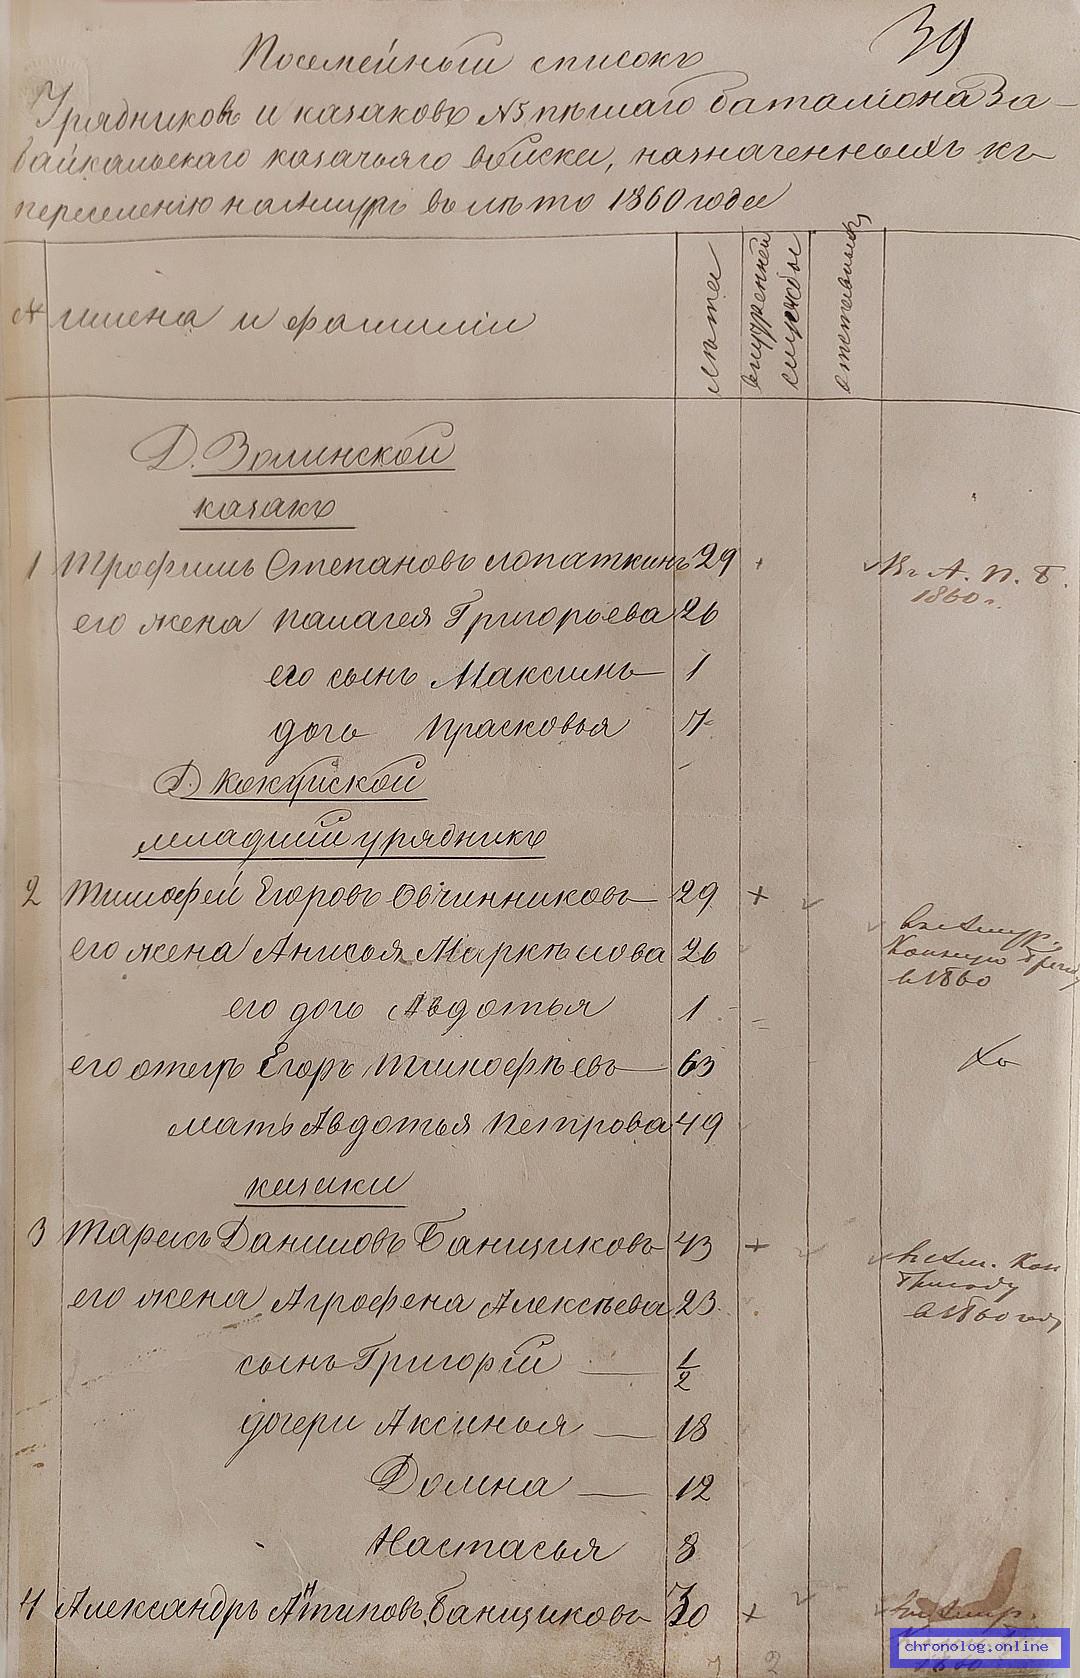 39
Посемейный списокъ
Урядниковъ и казаковъ №5 пѣшаго баталіона За-
байкальскаго казачьяго войска, назначенныхъ къ
переселенію на Амуръ въ лѣто 1860 года
№ имена и фамиліи лѣта внутренней службы отставныхъ
Д. Золинской
казакъ
1 Трофимъ Степановъ Лопаткинъ 29
Въ А. П. Б.
1860 г.
его жена Палагея Григорьева 26
его сынъ Максимъ 1
дочь Прасковья 7
Д. Кокуйской
младшій урядникъ
2 Тимофей Егоровъ Овчинниковъ 29 +
его жена Анисья Маркѣлова 26
въ Амур.
Конную Бригад
в 1860
его дочь Авдотья 1
его отецъ Егоръ Тимофѣевъ 63
мать Авдотья Петрова 49
казаки
3 Тарасъ Даниловъ Банщиковъ 43 +
въ Ам. Кон
Бригаду
в 1860 году
его жена Аграфена Алексѣева 23
сынъ Григорій — 1/2
дочери Аксинья — 18
Домна — 12
Настасья 8
4 Александръ Антиповъ Банщиковъ 30 +
въ Амур.
1860
chronolog.online